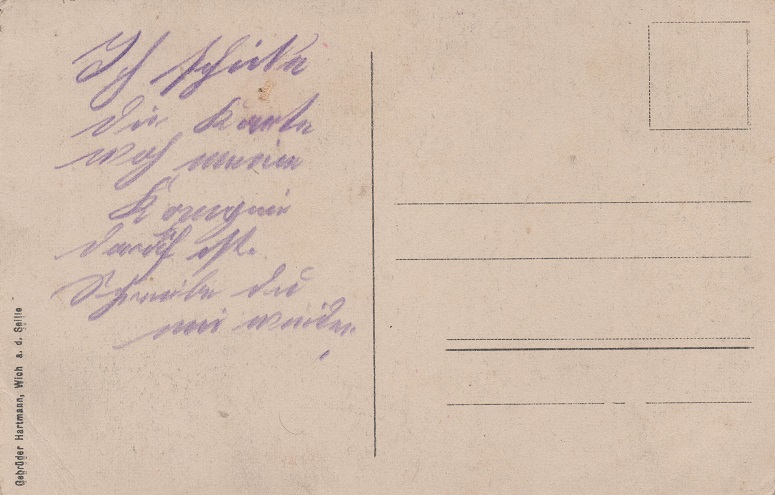 Ich schicke
die Karte
woh meine
Kompnie
darauf ist.
Schreibe du
mir wieder
Gebrüder Hartmann, Wich a. d. Seille